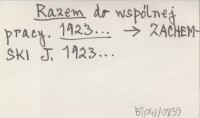 Razem do wspólnej
pracy. 1923... → ZACHEM-
SKI J. 1923...